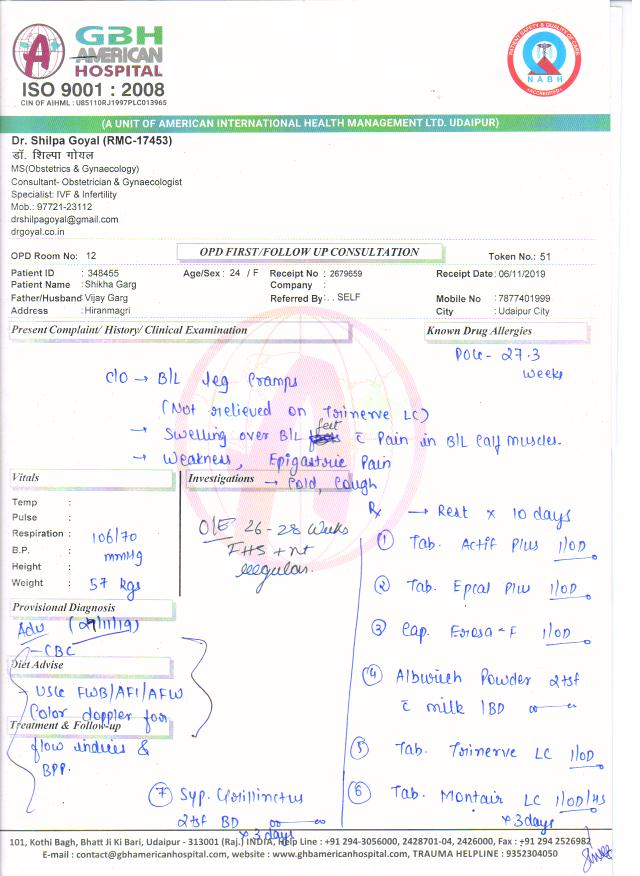 GBH
AMERICAN
HOSPITAL
ISO 9001 : 2008
CIN OF AIHML : U85110RJ1997PLC013965
PATIENT SAFETY & QUALITY OF CARE
NABH
ACCREDITED
(A UNIT OF AMERICAN INTERNATIONAL HEALTH MANAGEMENT LTD. UDAIPUR)
Dr. Shilpa Goyal (RMC-17453)
डॉ. शिल्पा गोयल
MS(Obstetrics & Gynaecology)
Consultant- Obstetrician & Gynaecologist
Specialist: IVF & Infertility
Mob.: 97721-23112
drshilpagoyal@gmail.com
drgoyal.co.in
OPD Room No: 12 OPD FIRST/FOLLOW UP CONSULTATION Token No.: 51
Patient ID : 348455 Age/Sex : 24 / F Receipt No : 2679659 Receipt Date : 06/11/2019
Patient Name : Shikha Garg Company :
Father/Husband Vijay Garg Referred By : . . SELF Mobile No : 7877401999
Address : Hiranmagri City : Udaipur City
Present Complaint/ History/ Clinical Examination Known Drug Allergies
POG - 27.3
weeks
C/O → B/L leg cramps
(Not relieved on Trinerve LC)
→ Swelling over B/L feet c̄ Pain in B/L calf muscles.
→ Weakness, Epigastric Pain
→ Cold, Cough
Vitals
Investigations
Temp :
Pulse :
Respiration :
B.P. : 106/70 mmHg
Height :
Weight : 57 kgs
O/E 26-28 weeks
FHS +nt
regular.
Rx → Rest x 10 days
① Tab. Actif Plus 1/OD
② Tab. Epcal Plus 1/OD
③ Cap. 1/OD
④ Powder 2tsf
c̄ milk / BD
⑤ Tab. Trinerve LC 1/OD
⑥ Tab. Montair LC 1/OD/HS
x 3 days
Provisional Diagnosis
Adv (27/11/19)
- CBC
Diet Advise
- USG FWB/AFI/AFW
Color doppler for
Treatment & Follow-up
flow indices &
BPP.
⑦ Syp. Grilinctus
2tsf BD
x 3 days
101, Kothi Bagh, Bhatt Ji Ki Bari, Udaipur - 313001 (Raj.) INDIA, Help Line : +91 294-3056000, 2428701-04, 2426000, Fax : +91 294 2526982
E-mail : contact@gbhamericanhospital.com, website : www.gbhamericanhospital.com, TRAUMA HELPLINE : 9352304050